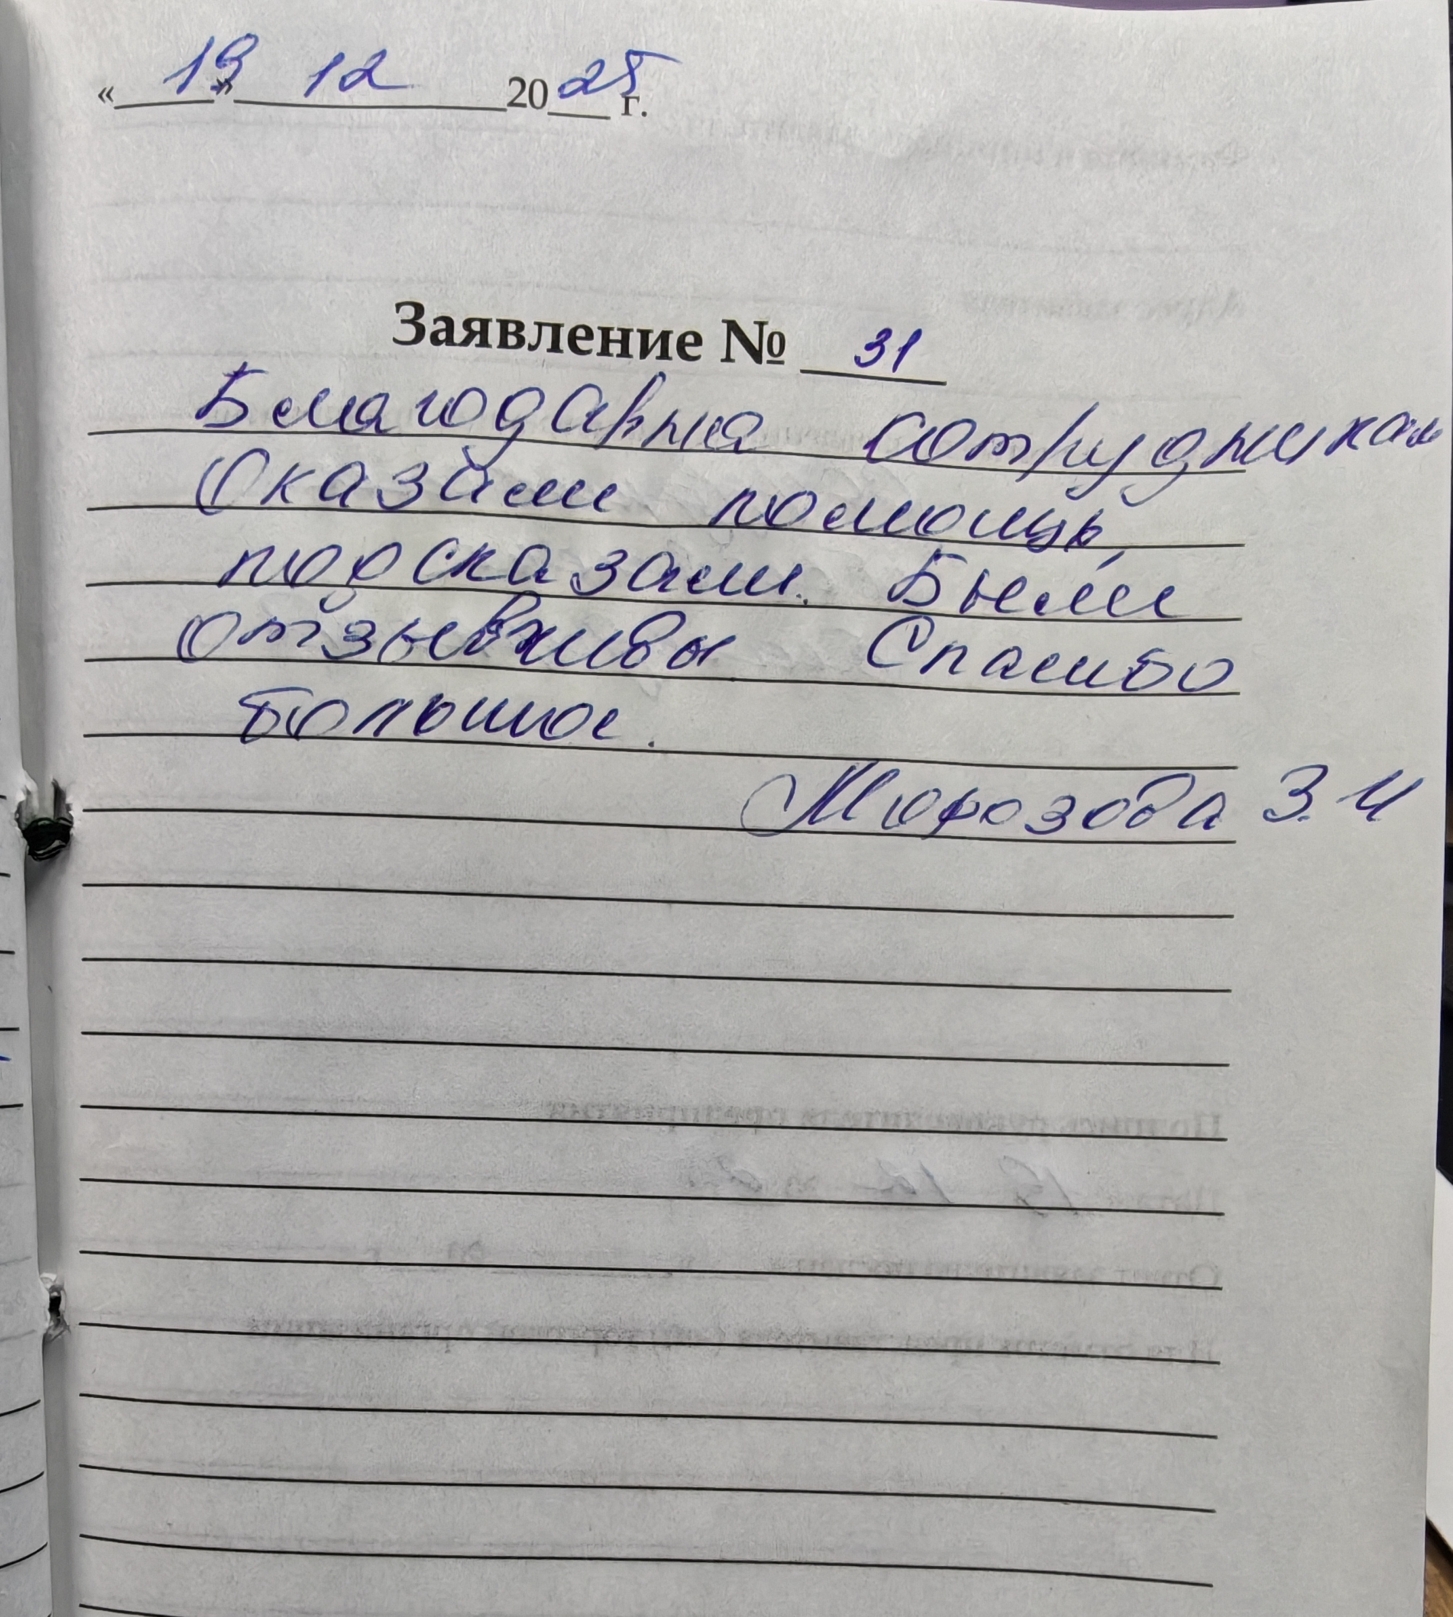 «19» 12 2025 г.
Заявление № 31
Благодарна сотрудникам
Оказали помощь,
подсказали. Были
отзывчивы Спасибо
большое.
Морозова З.И